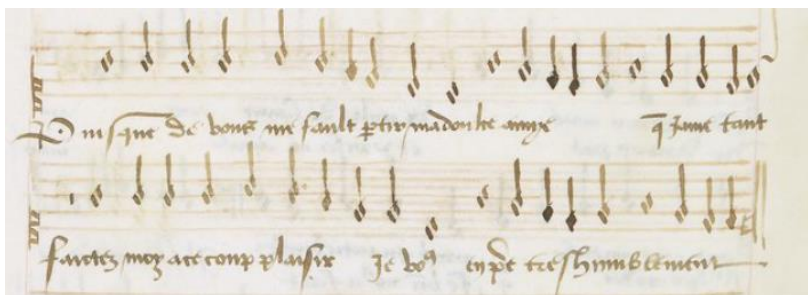 Puisque de vous me fault ꝑtir ma doulce amye q̄ iame tant
faictez moy a ce coup plaisir Je voꝰ en pͥe treshumblement